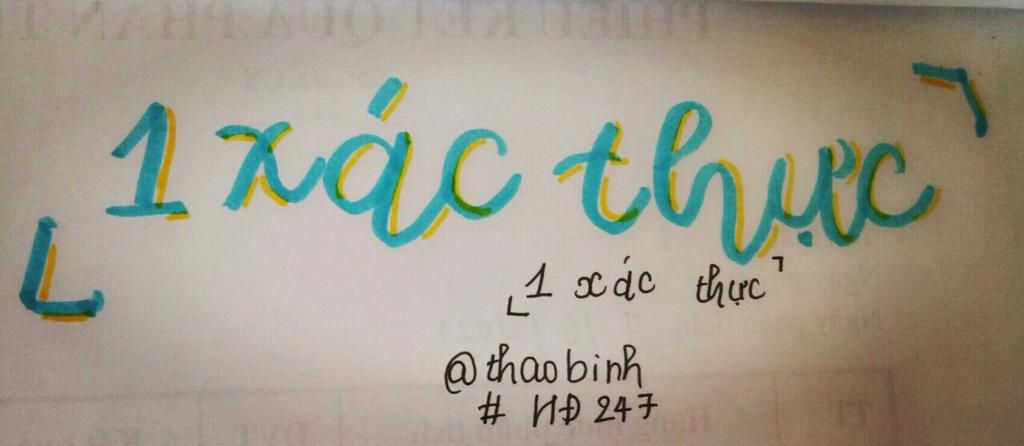 1 xác thực
1 xác thực
@thaobinh
# HĐ 247